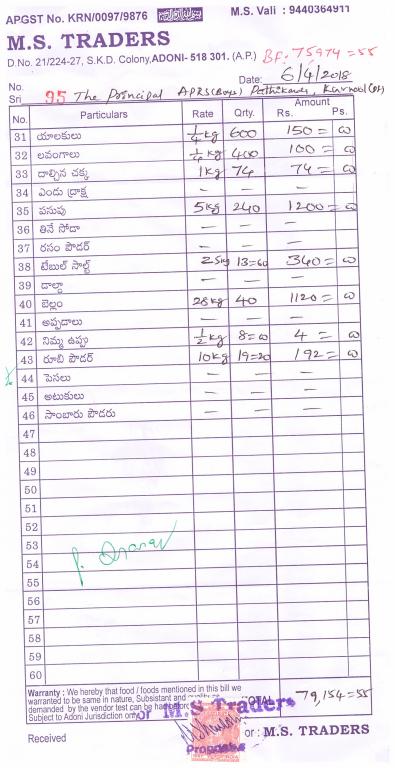 APGST No. KRN/0097/9876 M.S. Vali : 9440364911
M.S. TRADERS
D.No. 21/224-27, S.K.D. Colony, ADONI- 518 301. (A.P.) BF. 75974=55
No. 95 Date: 6/4/2018
Sri The Principal APRS(Boys) Kurnool
No. Particulars Rate Qrty. Amount Rs. Ps.
31 యాలకులు 1/4 kg 600 150 = ω
32 లవంగాలు 1/4 kg 400 100 = ω
33 దాల్చిన చక్క 1kg 74 74 = ω
34 ఎండు ద్రాక్ష — — —
35 పసుపు 5kg 240 1200 = ω
36 తినే సోడా — — —
37 రసం పౌడర్ — — —
38 టేబుల్ సాల్ట్ 25kg 13=60 340 = ω
39 డాల్డా — — —
40 బెల్లం 28kg 40 1120 = ω
41 అప్పడాలు — — —
42 నిమ్మ ఉప్పు 1/2 kg 8=ω 4 = ω
43 రూబి పౌడర్ 10kg 19=20 192 = ω
44 పెసలు — — —
45 అటుకులు — — —
46 సాంబారు పౌడరు — — —
47
48
49
50
51
52
53
54
55
56
57
58
59
60
Warranty : We hereby that food / foods mentioned in this bill we
warranted to be same in nature, Subsistant and quality of TOTAL 79,154=55
demanded by the vendor test can be had before
Subject to Adoni Jurisdiction only. For M.S. Traders
Received For : M.S. TRADERS